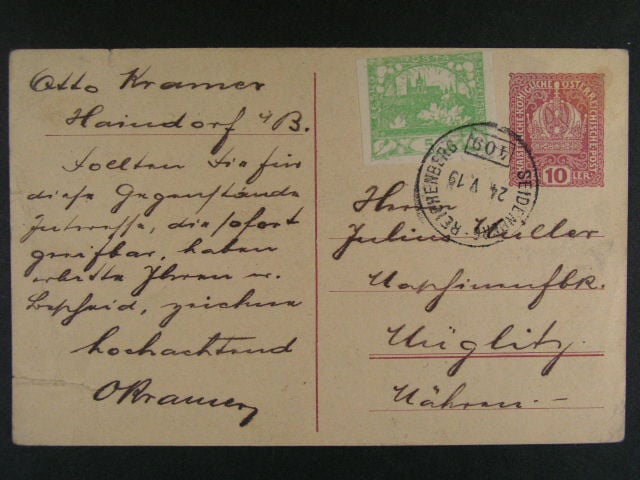 Otto Kramer
Haindorf i/B.
Sollten Sie für
diese Gegenstände
Interesse, die sofort
greifbar, haben
erbitte Ihren w.
Bescheid, zeichne
hochachtend
OKramer
KAISERLICHE KÖNIGLICHE ÖSTERREICHISCHE POST
10 HELLER
SEIDENBERG-REICHENBERG
409
24 V 19
Herrn
Julius Müller
Maschinenfbk.
Müglitz
Mähren.-